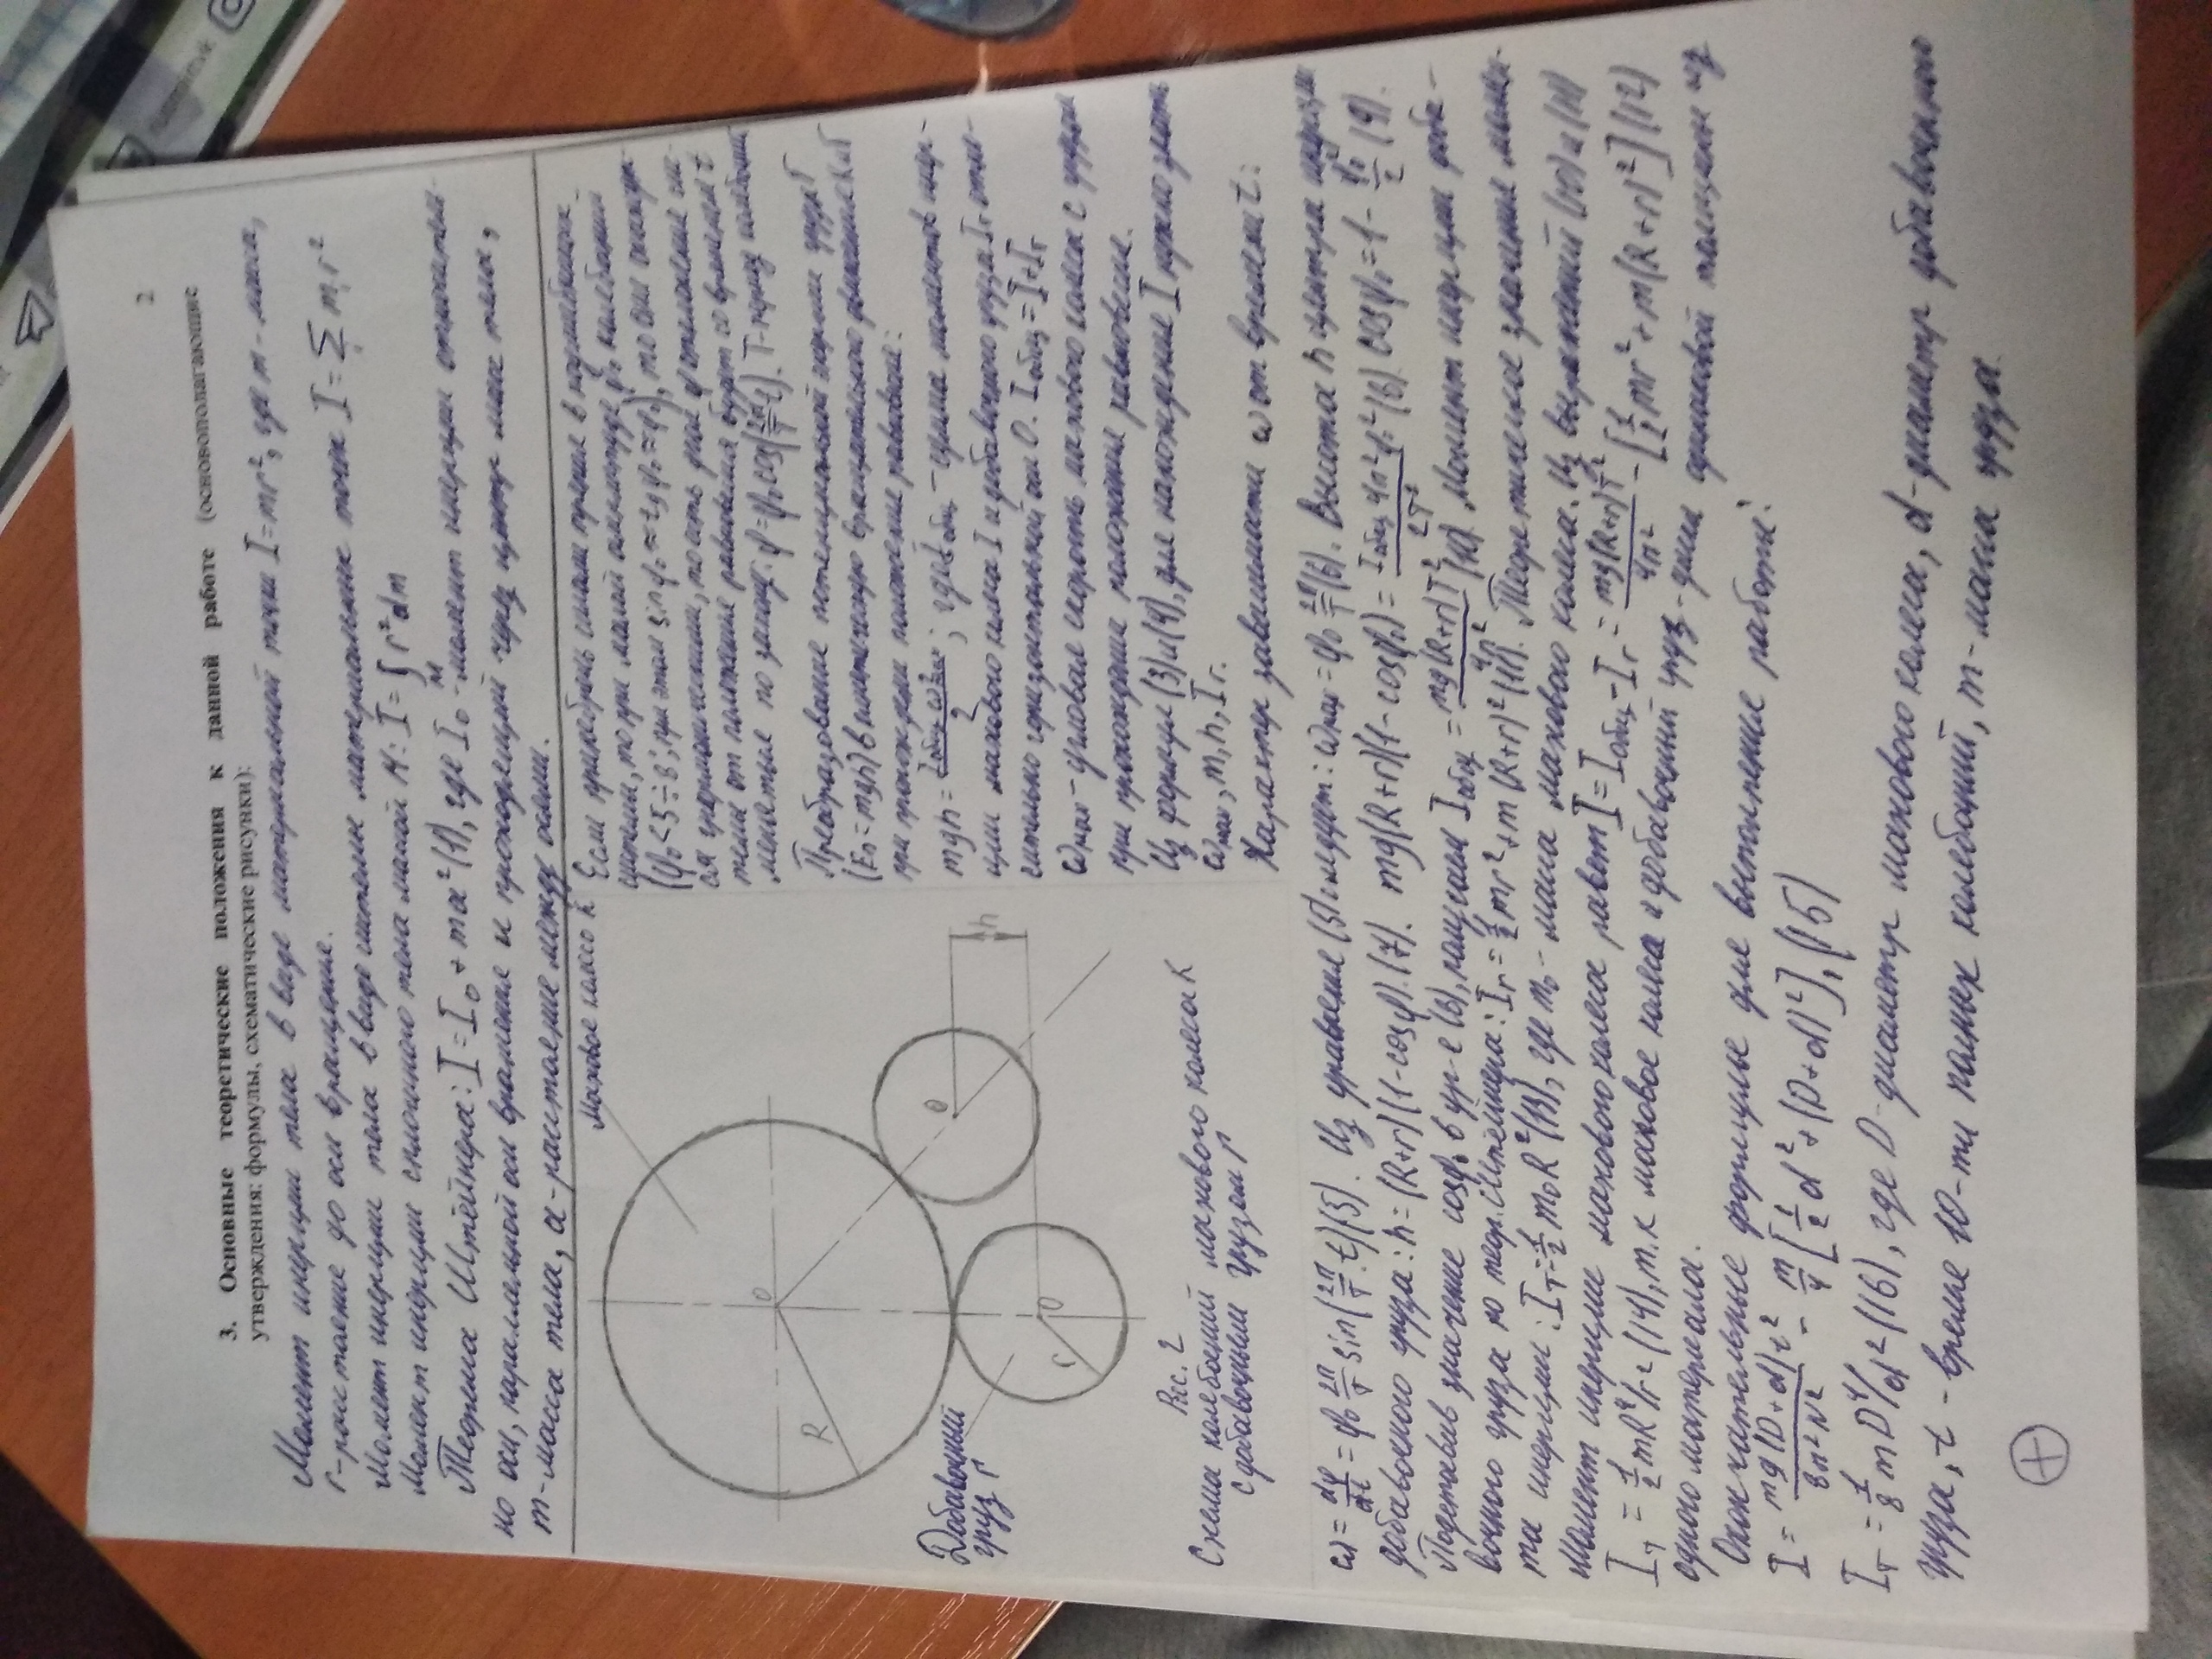 2
3. Основные теоретические положения к данной работе (основополагающие
утверждения: формулы, схематические рисунки):
Момент инерции тела в виде материальной точки I = mr², где m - масса,
r - расстояние до оси вращения.
Момент инерции тела в виде системы материальных точек I = ∑ mᵢr²
Момент инерции сплошного тела массой М: I = ∫ r² dm
M
Теорема Штейнера: I = I₀ + ma² (1), где I₀ - момент инерции относитель-
но оси, параллельной оси вращения и проходящей через центр масс тела,
m - масса тела, a - расстояние между осями.
Маховое колесо К
O
R
Добавочный
груз Г
O
h
r
O
Рис. 2
Схема колебаний махового колеса К
с добавочным грузом Г
Если пренебречь силами трения в подшипниках
системы, то при малой амплитуде φ₀ колебаний
(φ₀ < 5÷8°, при этом sin φ₀ ≈ tg φ₀ ≈ φ₀), то они
ся гармоническими, то есть угол φ отклонения сис-
темы от положения равновесия будет со временем t
меняться по закону: φ = φ₀ cos(2π/T t). T - период колебаний
Преобразование потенциальной энергии груза Г
(Eп = mgh) в кинетическую вращательного движения К и Г
при прохождении положения равновесия:
mgh = Iобщ ω²max / 2 ; где Iобщ - сумма моментов инер-
ции махового колеса I и добавочного груза Iг относ-
сительно горизонтальной оси O. Iобщ = I + Iг
ωmax - угловая скорость махового колеса с грузом
при прохождении положения равновесия.
Из формул (3) и (4), для нахождения I нужно знать
ωmax, m, h, Iг.
Характер зависимости ω от времени t:
ω = dφ/dt = φ₀ 2π/T sin(2π/T t) (5). Из уравнения (5) следует: ωmax = φ₀ 2π/T (6). Высота h центра инерции
добавочного груза: h = (R+r)(1-cosφ). (7). mg(R+r)(1-cosφ₀) = Iобщ 4π²φ₀² / 2T² (8) cosφ₀ = 1 - φ₀/2 (9).
Подставив значение cosφ₀ в ур-е (8), получаем Iобщ = mg(R+r)T² / 4π² (10). Момент инерции доба-
вочного груза по теор. Штейнера: Iг = ½ mr² + m(R+r)² (11). Теоретическое значения момен-
та инерции: Iт = ½ m₀R² (13), где m₀ - масса махового колеса. Из выражений (10) и (11)
Момент инерции махового колеса равен I = Iобщ - Iг = mg(R+r)T² / 4π² - [½ mr² + m(R+r)²] (12)
Iт = ½ mR⁴/r² (14), т.к маховое колеса и добавочный груз - диски одинаковой толщины из
одного материала.
Окончательные формулы для выполнения работы:
I = mg(D+d)t² / 8π²N² - m/4 [½ d² + (D+d)²], (15)
Iт = ⅛ mD⁴/d² (16), где D - диаметр махового колеса, d - диаметр добавочного
груза, t - время 10-ти полных колебаний, m - масса груза.